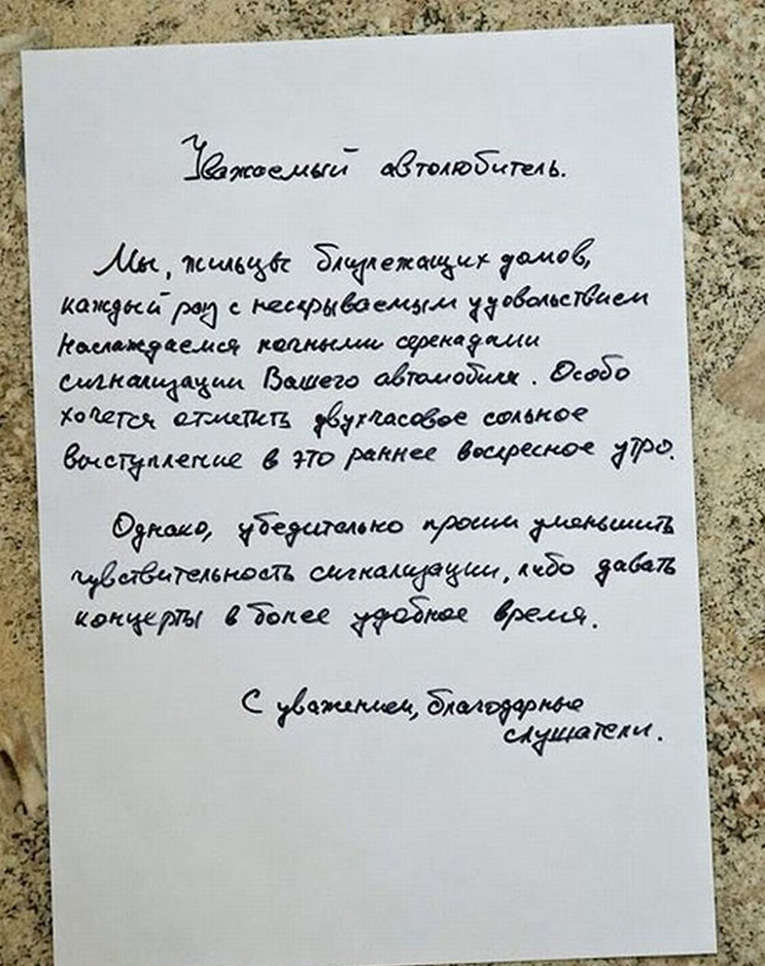 Уважаемый автолюбитель.
Мы, жильцы близлежащих домов,
каждый раз с нескрываемым удовольствием
наслаждаемся ночными серенадами
сигнализации Вашего автомобиля. Особо
хочется отметить двухчасовое сольное
выступление в это раннее воскресное утро.
Однако, убедительно просим уменьшить
чувствительность сигнализации, либо давать
концерты в более удобное время.
С уважением, благодарные
слушатели.